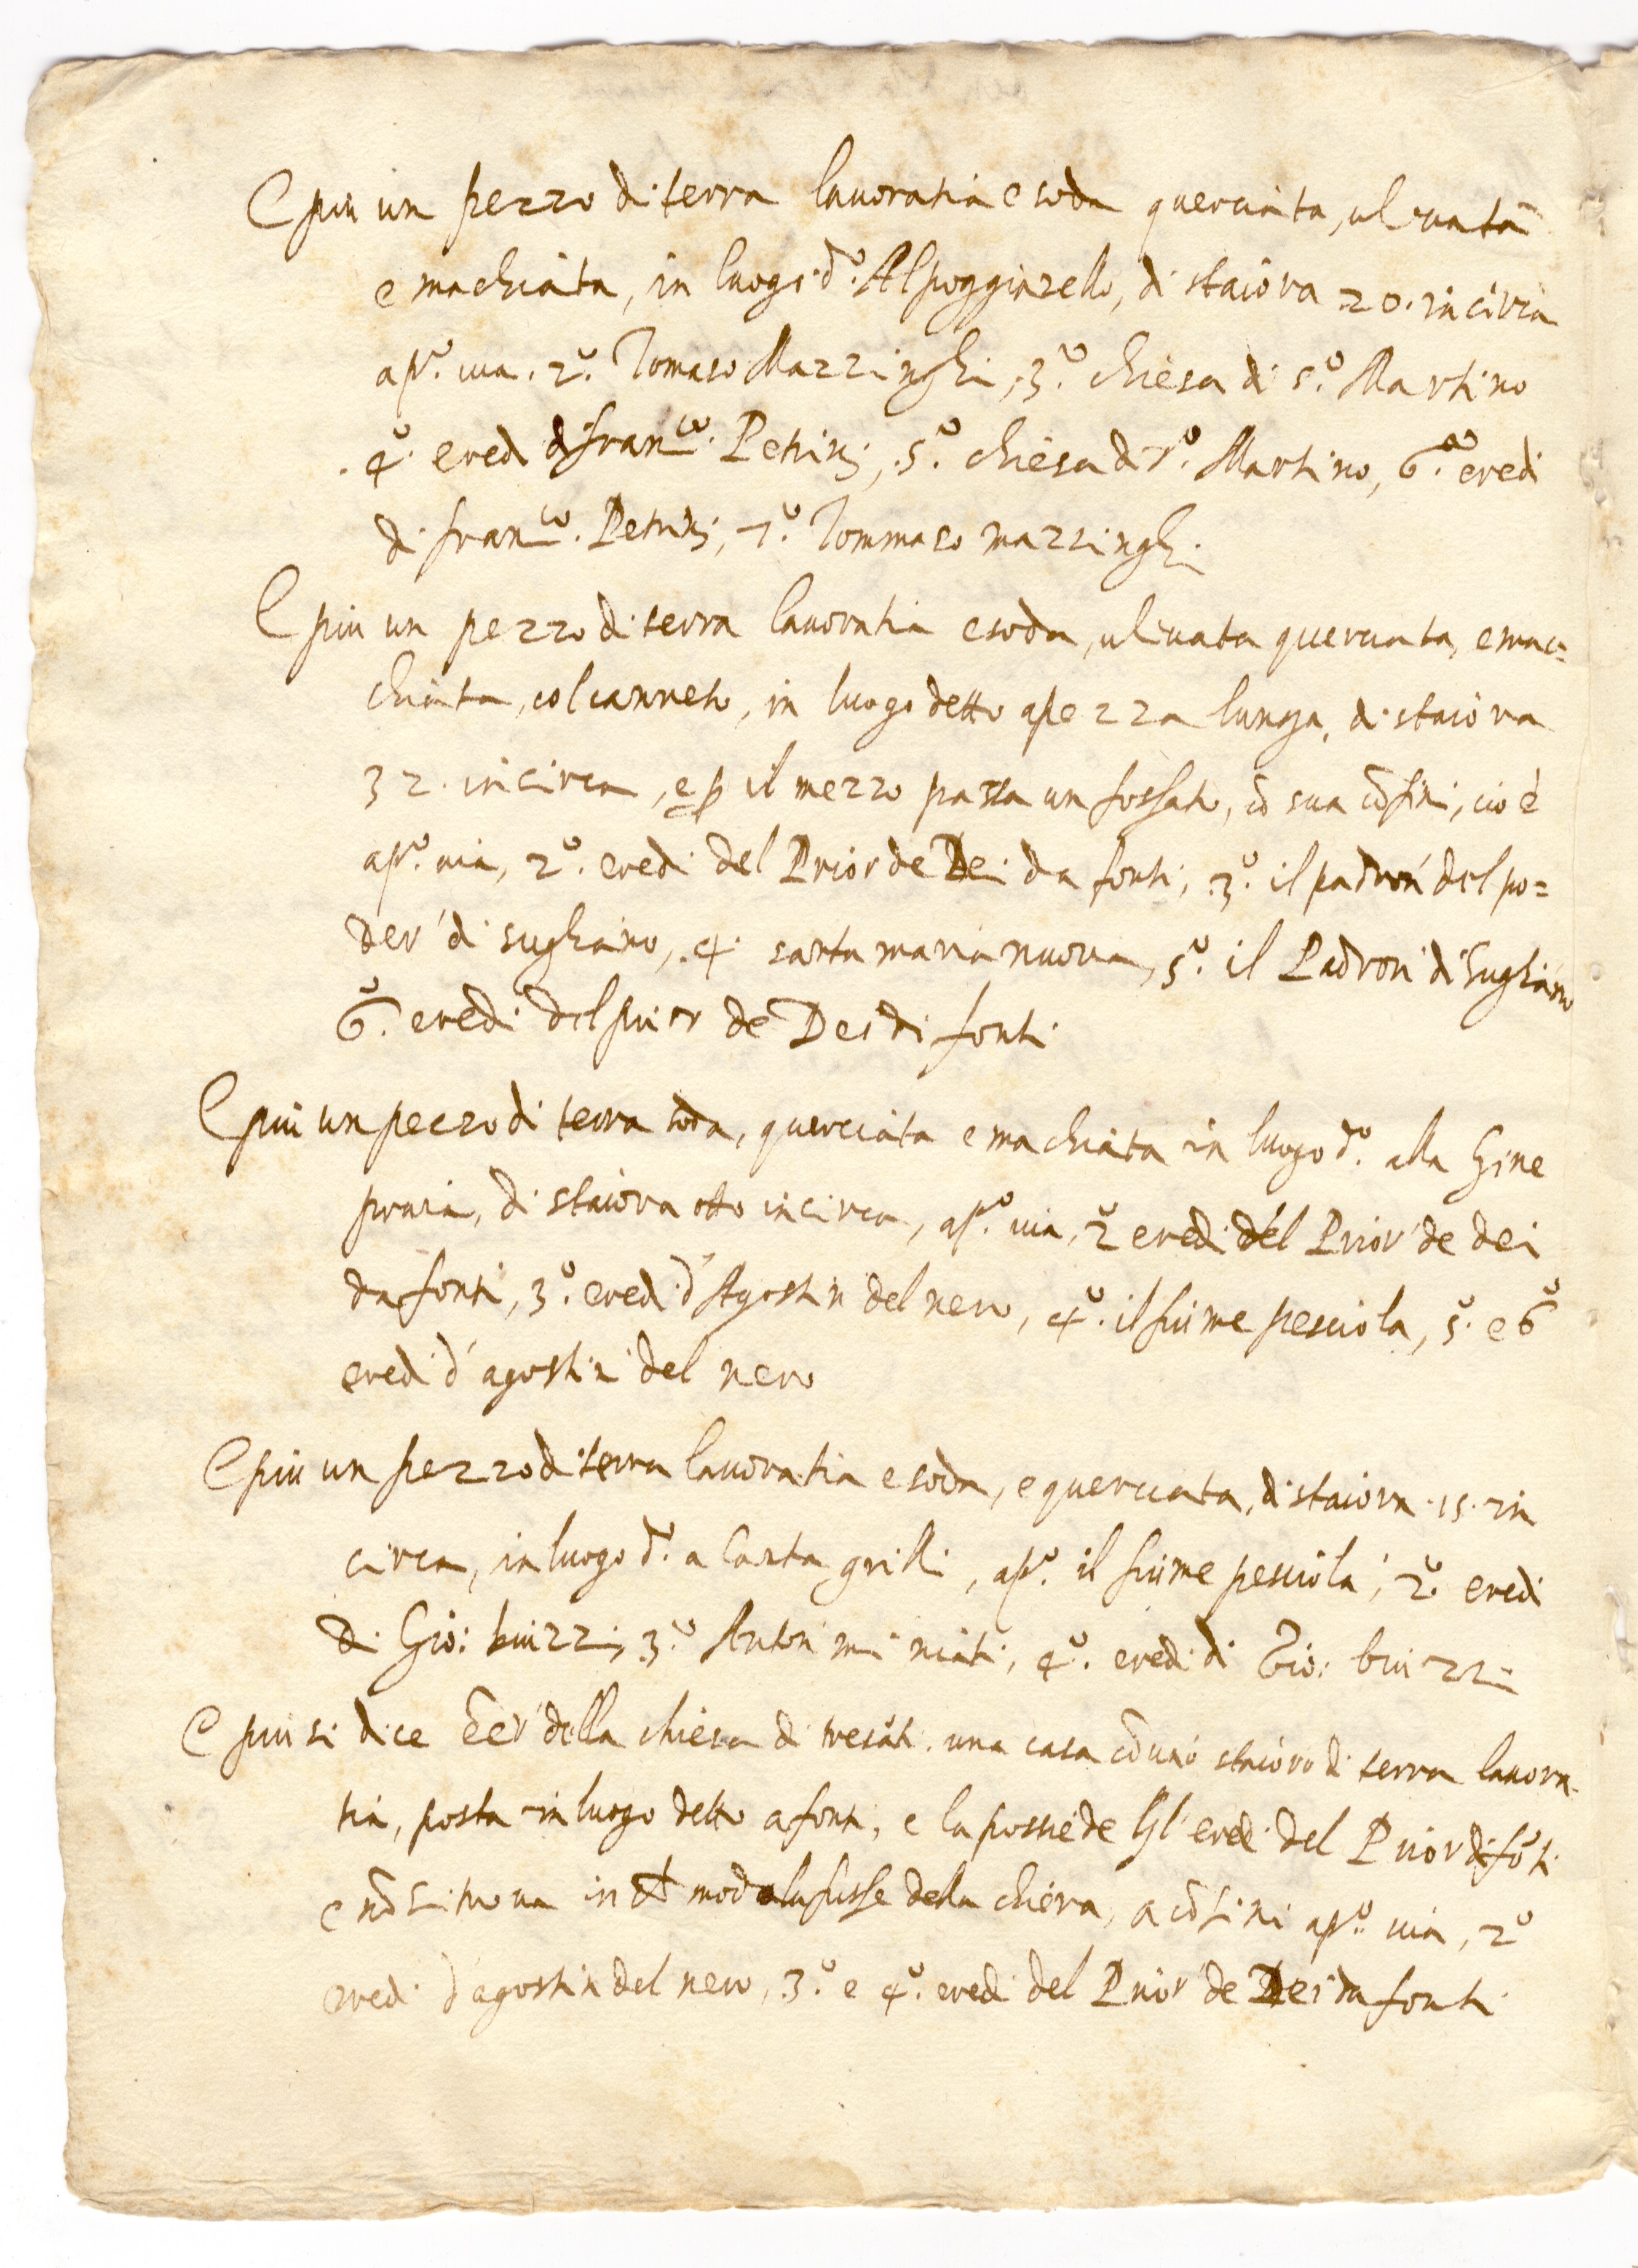 E piu un pezzo di terra lauoratia e soda querciata, uliuata
e machiata, in luogo d.º Al poggiarello, di staiora 20. in circa
a p.º uia. 2.º Tomaso Mazzinghi, 3.º chiesa di S.º Martino
4.º eredi di Fran.co Petrini, 5.º chiesa di S.º Martino, 6.º eredi
di fran.co Petrini, 7.º Tommaso mazzinghi
E piu un pezzo di terra lauoratia e soda, uliuata querciata, e mac=
chiata, col canneto, in luogo detto a pezza lunga, di staiora
32. in circa, e p il mezzo passa un fossato, cō sua cōfini, cio è
a p.º uia, 2.º eredi del Prior de Dei da fonti, 3.º il padron' del po=
der' di sugliano, 4.º santa maria nuoua, 5.º il Padron' di Sugliano
6.º eredi del prior de Dei di fonti
E piu un pezzo di terra soda, querciata e machiata in luogo d.º alla Gine
praia, di staiora otto in circa, a p.º uia, 2.º eredi del Prior' de dei
da fonti, 3.º eredi d'Agostin' del nero, 4.º il fiume pesciola, 5.º e 6.º
eredi d'agostin' del nero
E piu un pezzo di terra lauoratia e soda, e querciata, di staiora .15. in
circa, in luogo d.º a Canta grilli, a p.º il fiume pesciola, 2.º eredi
di Gio: buizzi, 3.º Anton' miniati, 4.º eredi di Gio: buizzi
E piu si dice ēer' della chiesa di tresāti una casa cō uno staioro di terra lauora=
tia, posta in luogo detto a fonti, e la possiede Gl'eredi del Prior di fōti
e nō si troua in che modo la fusse della chiesa, a cōfini a p.º uia, 2.º
eredi d'agostin del nero, 3.º e 4.º eredi del Prior' de Dei da fonti